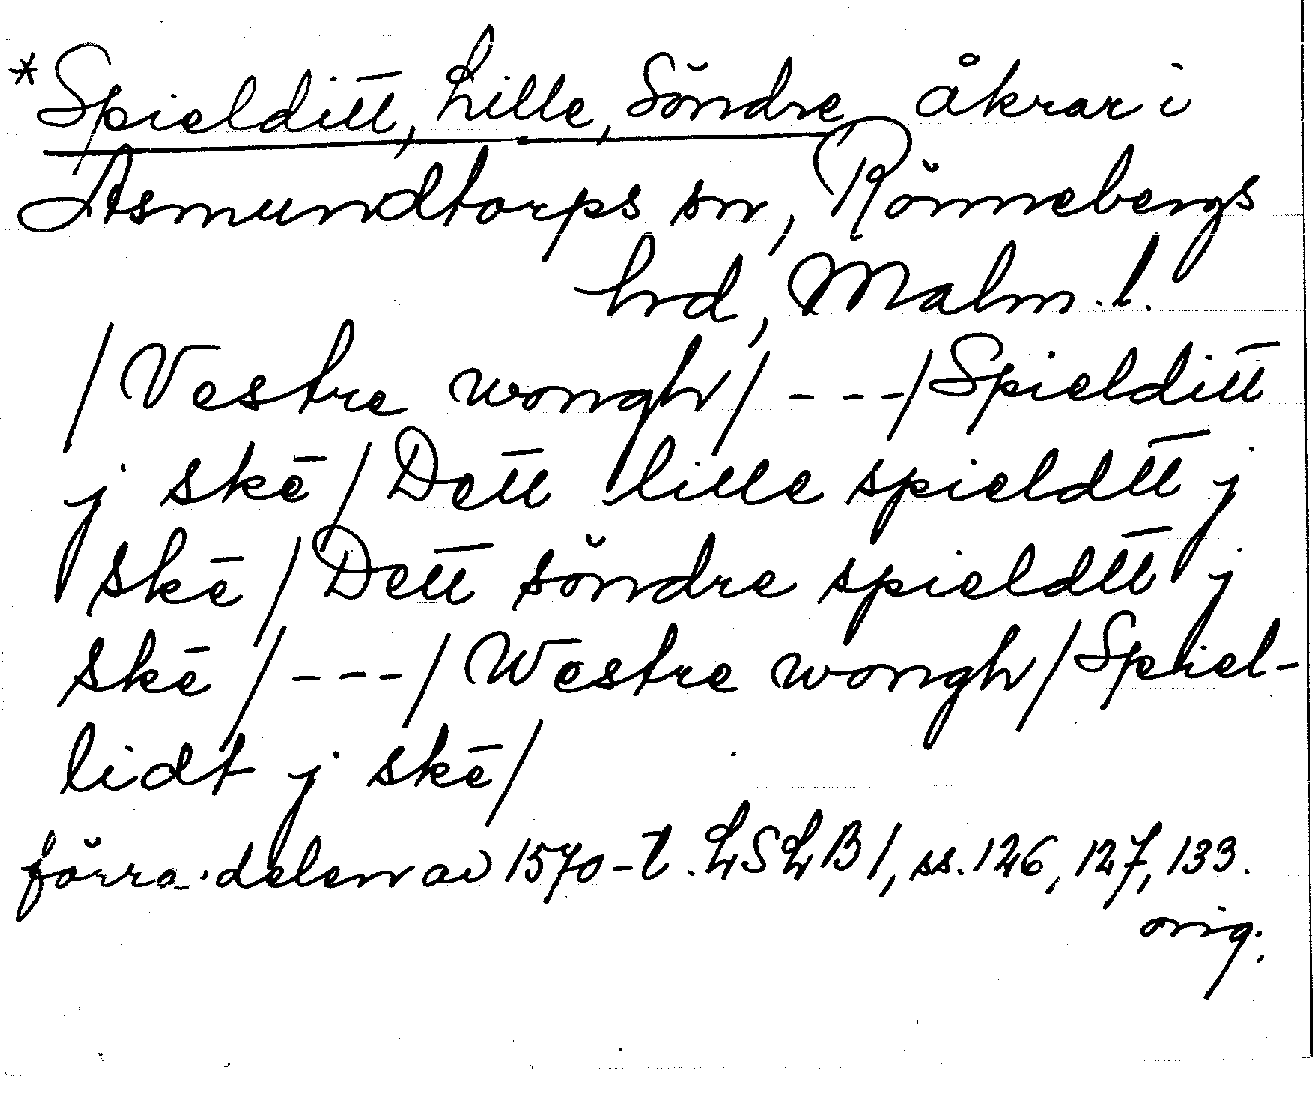 *Spielditt, Lille, Söndre, åkrar i
Asmundtorps sn, Rönnebergs
hrd, Malm. l.
/Vestre wongh/ ---/Spielditt
j skē/Dett lille spieldtt j
skē/Dett söndre spieldtt j
skē/---/Westre wongh/Spiel-
lidt j skē/
förra delen av 1570-t. LSLB 1, ss. 126, 127, 133.
orig.